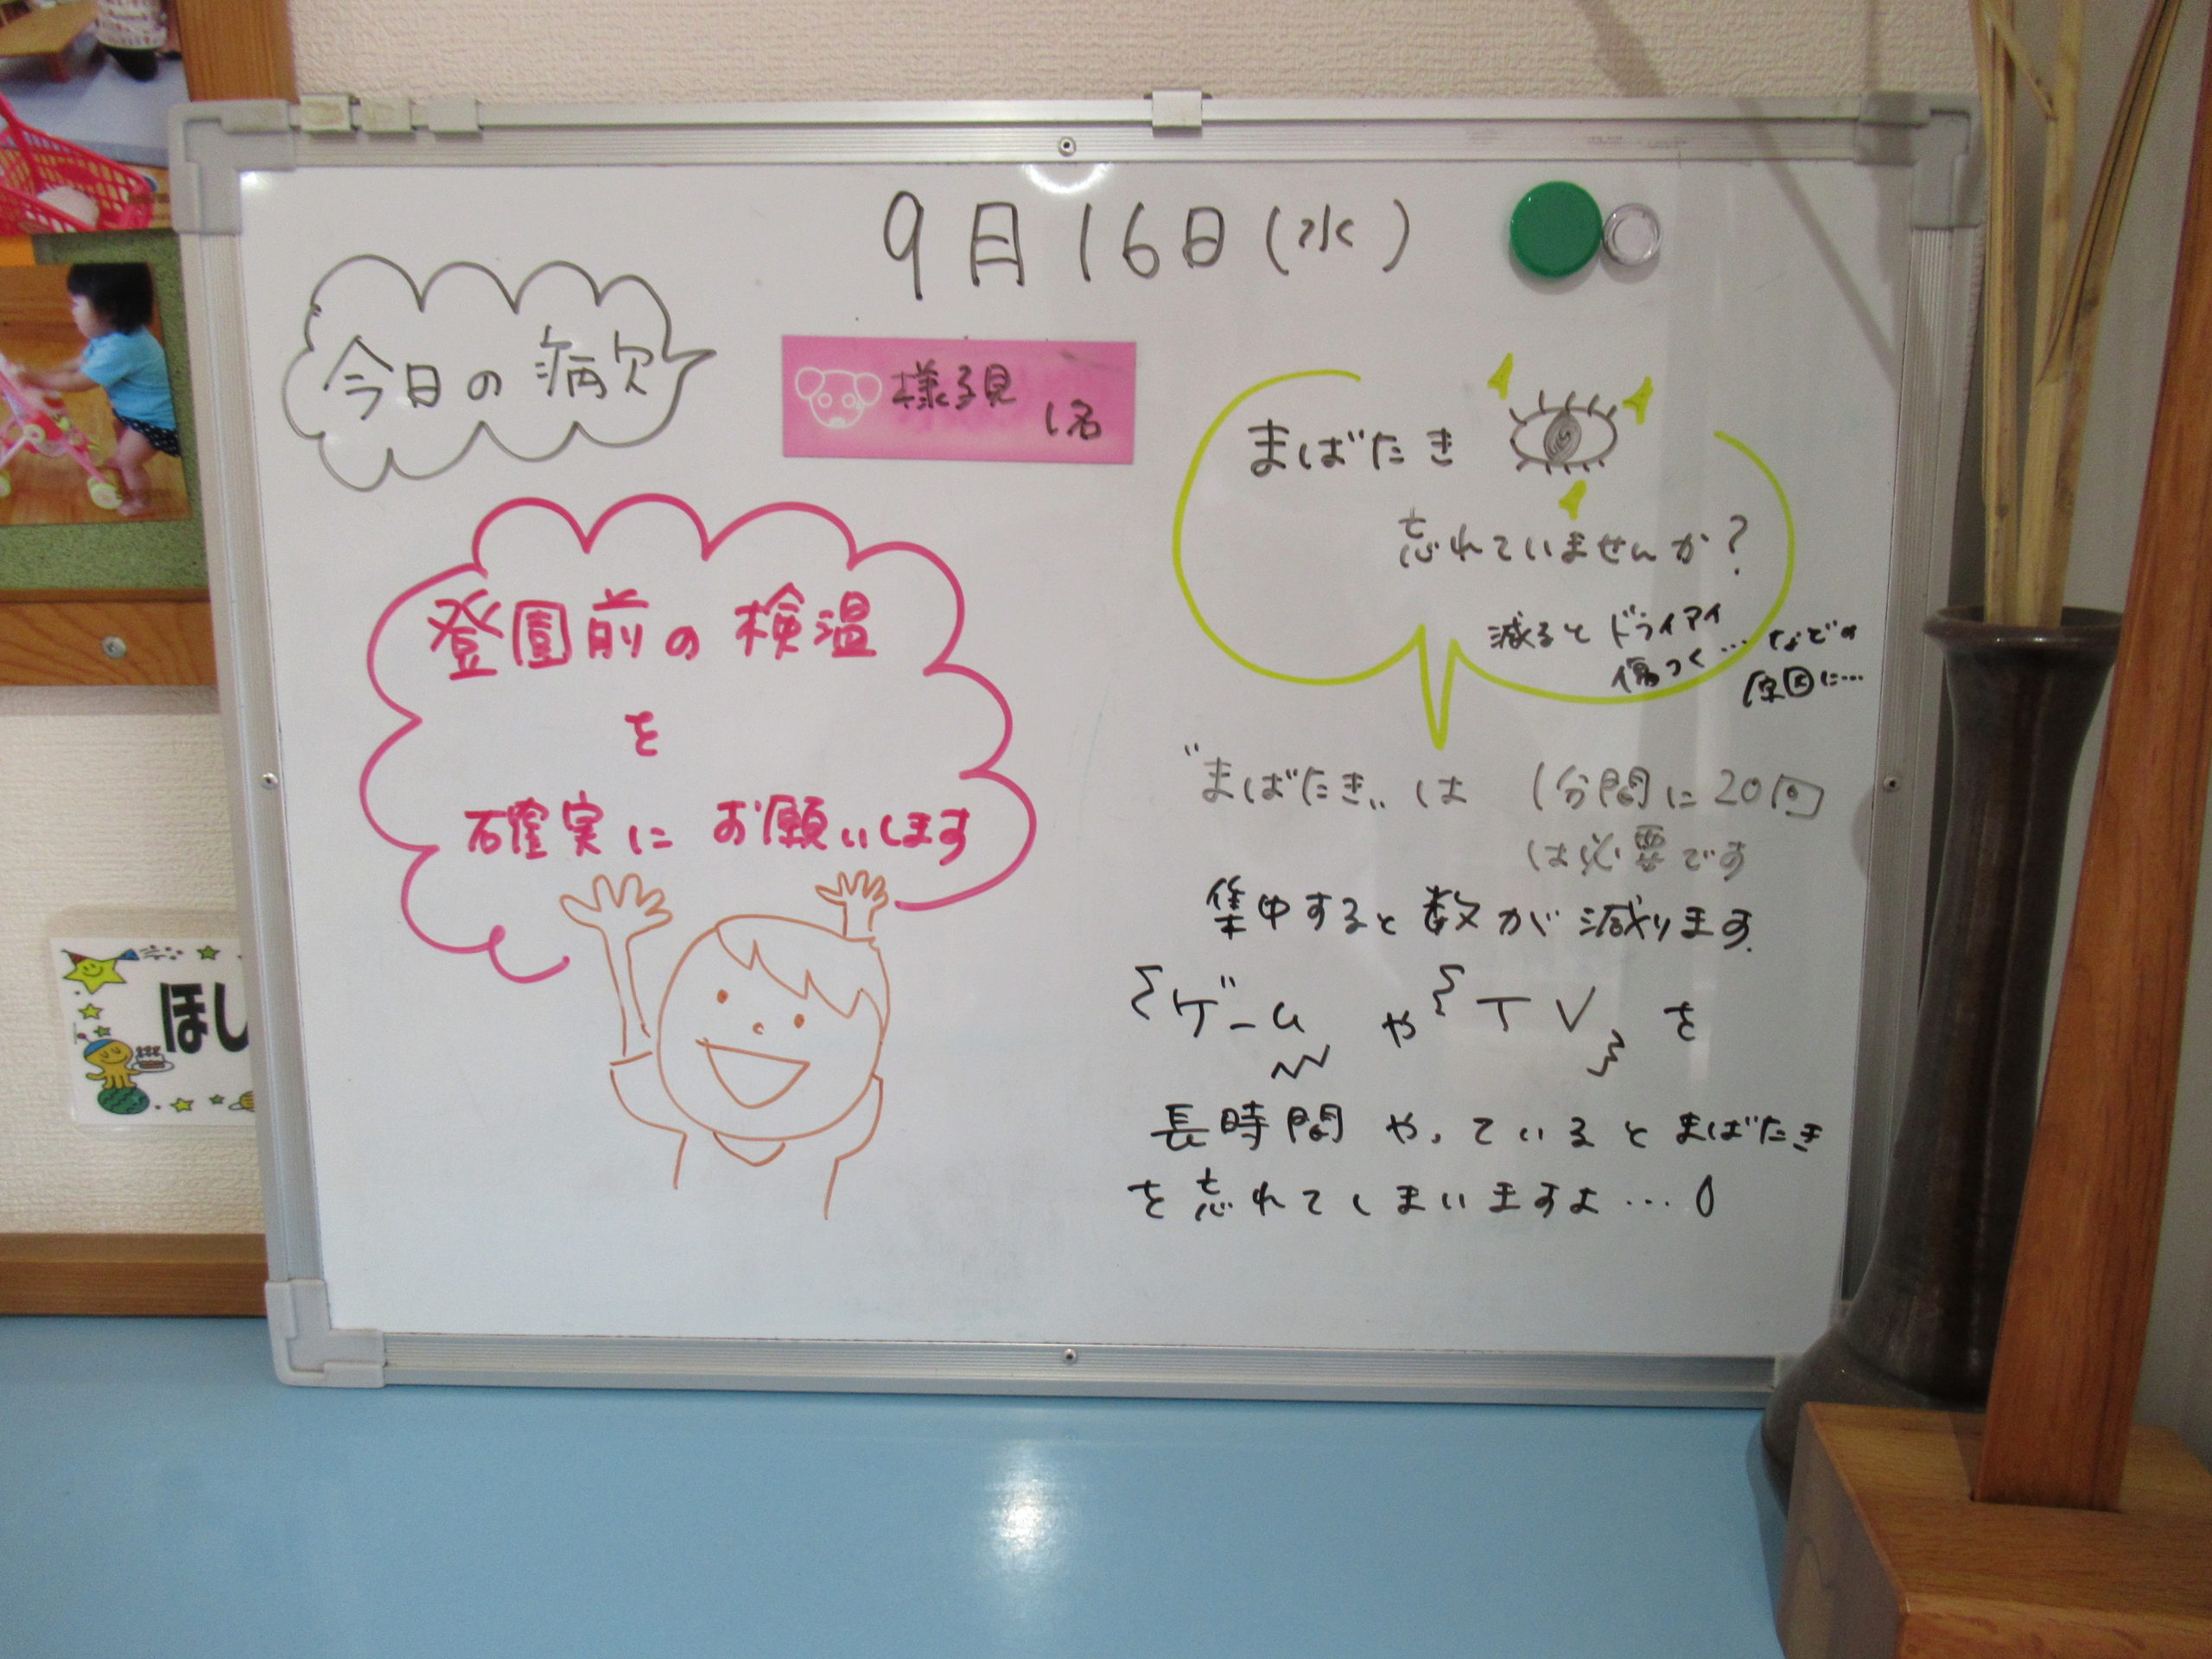 9月16日(水)
今日の病欠
様子見 1名
登園前の検温
を
確実に お願いします
まばたき
忘れていませんか?
減ると ドライアイ
傷つく… などの
原因に…
"まばたき" は 1分間に20回
は必要です
集中すると 数が 減ります
ゲーム や TV を
長時間 やっていると まばたき
を 忘れてしまいますよ…
ほし